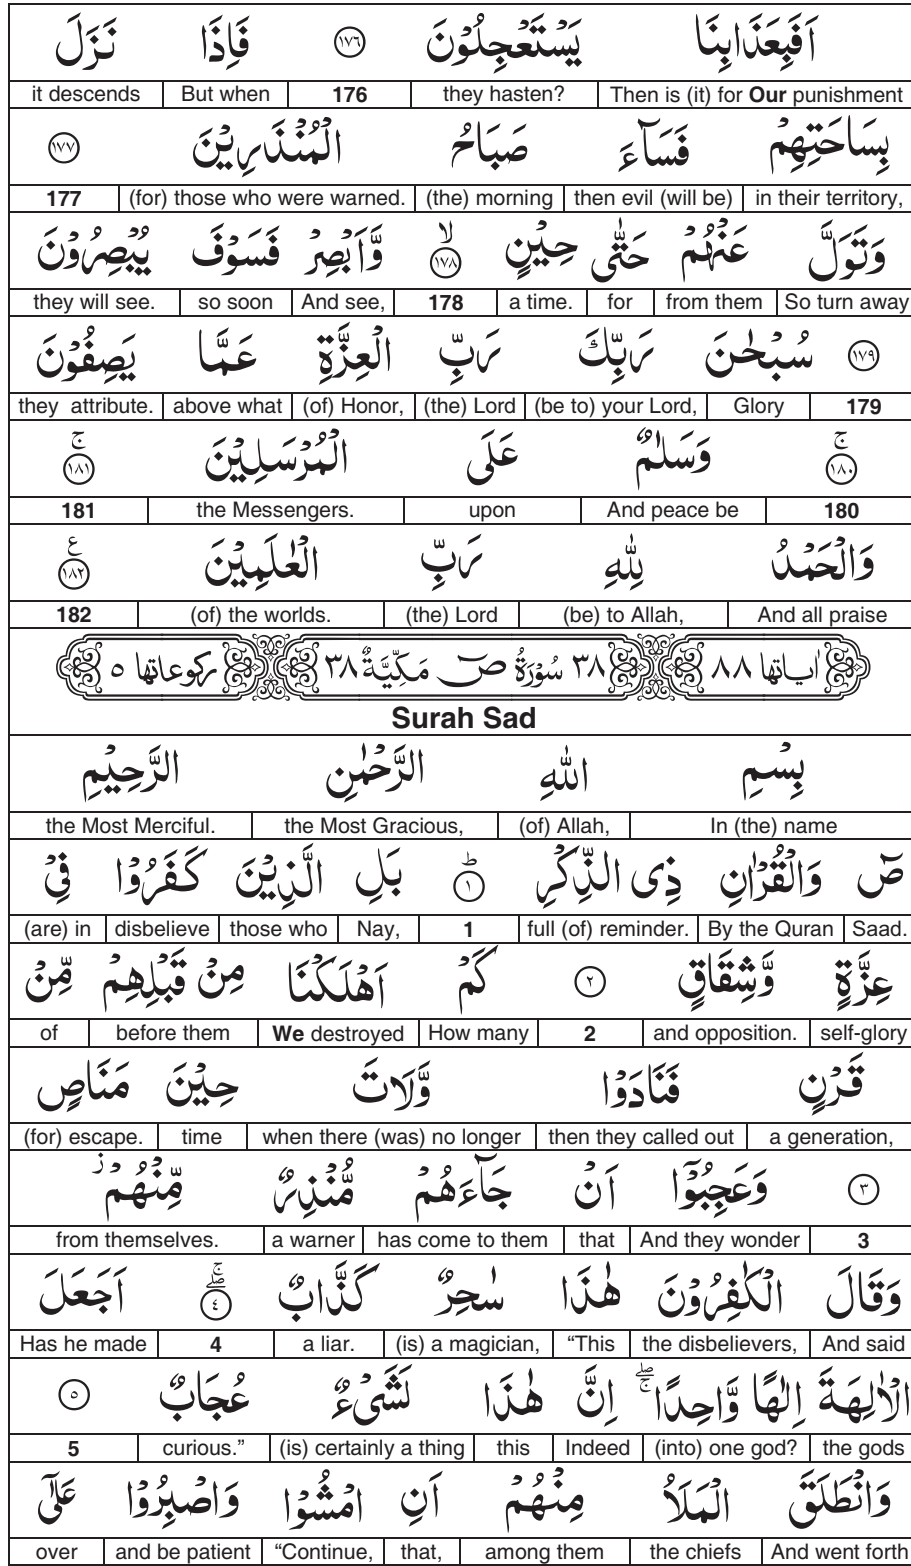 اَفَبِعَذَابِنَا يَسْتَعْجِلُوْنَ ﴿١٧٦﴾ فَاِذَا نَزَلَ
it descends But when 176 they hasten? Then is (it) for Our punishment
بِسَاحَتِهِمْ فَسَآءَ صَبَاحُ الْمُنْذَرِيْنَ ﴿١٧٧﴾
177 (for) those who were warned. (the) morning then evil (will be) in their territory,
وَتَوَلَّ عَنْهُمْ حَتّٰى حِيْنٍ ﴿١٧٨﴾ۙ وَّاَبْصِرْ فَسَوْفَ يُبْصِرُوْنَ
they will see. so soon And see, 178 a time. for from them So turn away
﴿١٧٩﴾ سُبْحٰنَ رَبِّكَ رَبِّ الْعِزَّةِ عَمَّا يَصِفُوْنَ
they attribute. above what (of) Honor, (the) Lord (be to) your Lord, Glory 179
﴿١٨٠﴾ۚ وَسَلٰمٌ عَلَى الْمُرْسَلِيْنَ ﴿١٨١﴾ۚ
181 the Messengers. upon And peace be 180
وَالْحَمْدُ لِلّٰهِ رَبِّ الْعٰلَمِيْنَ ﴿١٨٢﴾ ع
182 (of) the worlds. (the) Lord (be) to Allah, And all praise
اٰیاتها ٨٨ ٣٨ سُوْرَةُ صٓ مَكِّيَّةٌ ٣٨ ركوعاتها ٥
Surah Sad
بِسْمِ اللّٰهِ الرَّحْمٰنِ الرَّحِيْمِ
the Most Merciful. the Most Gracious, (of) Allah, In (the) name
صٓ وَالْقُرْاٰنِ ذِى الذِّكْرِ ﴿١﴾ؕ بَلِ الَّذِيْنَ كَفَرُوْا فِىْ
(are) in disbelieve those who Nay, 1 full (of) reminder. By the Quran Saad.
عِزَّةٍ وَّشِقَاقٍ ﴿٢﴾ كَمْ اَهْلَكْنَا مِنْ قَبْلِهِمْ مِّنْ
of before them We destroyed How many 2 and opposition. self-glory
قَرْنٍ فَنَادَوْا وَّلَاتَ حِيْنَ مَنَاصٍ
(for) escape. time when there (was) no longer then they called out a generation,
﴿٣﴾ وَعَجِبُوْۤا اَنْ جَآءَهُمْ مُّنْذِرٌ مِّنْهُمْ ز
from themselves. a warner has come to them that And they wonder 3
وَقَالَ الْكٰفِرُوْنَ هٰذَا سٰحِرٌ كَذَّابٌ ﴿٤﴾ۖۚ اَجَعَلَ
Has he made 4 a liar. (is) a magician, “This the disbelievers, And said
الْاٰلِهَةَ اِلٰهًا وَّاحِدًا ۖۚ اِنَّ هٰذَا لَشَىْءٌ عُجَابٌ ﴿٥﴾
5 curious.” (is) certainly a thing this Indeed (into) one god? the gods
وَانْطَلَقَ الْمَلَاُ مِنْهُمْ اَنِ امْشُوْا وَاصْبِرُوْا عَلٰٓى
over and be patient “Continue, that, among them the chiefs And went forth